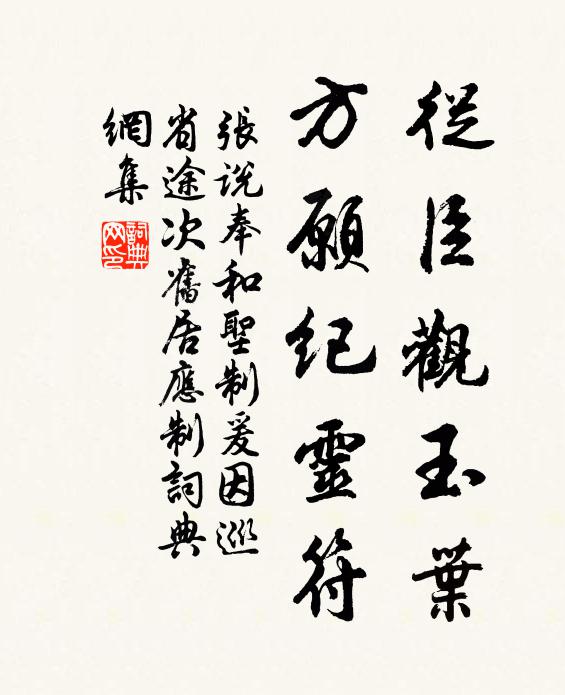 從臣觀玉葉
方願紀靈符
張說奉和聖制爰因巡
省途次舊居應制詞典
網集
詞典網印